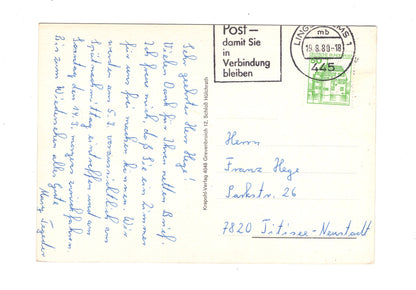 Post –
damit Sie
in
Verbindung
bleiben
LINGEN (EMS) 1
mb
19.8.80-18
445
Sehr geehrter Herr Hege!
Vielen Dank für Ihren netten Brief.
Ich freue mich, daß Sie ein Zimmer
für uns frei machen können. Wir
werden am 5.9. voraussichtlich am
Spätnachmittag eintreffen und am
Sonntag den 14.9. morgens zurückfahren.
Bis zum Wiedersehen alles Gute
Knopühl-Verlag 4048 Grevenbroich 12, Schloß Hülchrath
Herrn
Franz Hege
Parkstr. 26
7820 Titisee-Neustadt